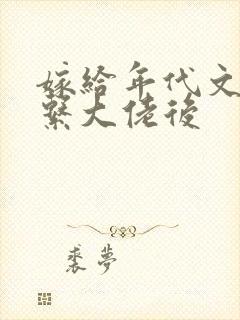 嫁給年代文
繫大佬後
裘夢